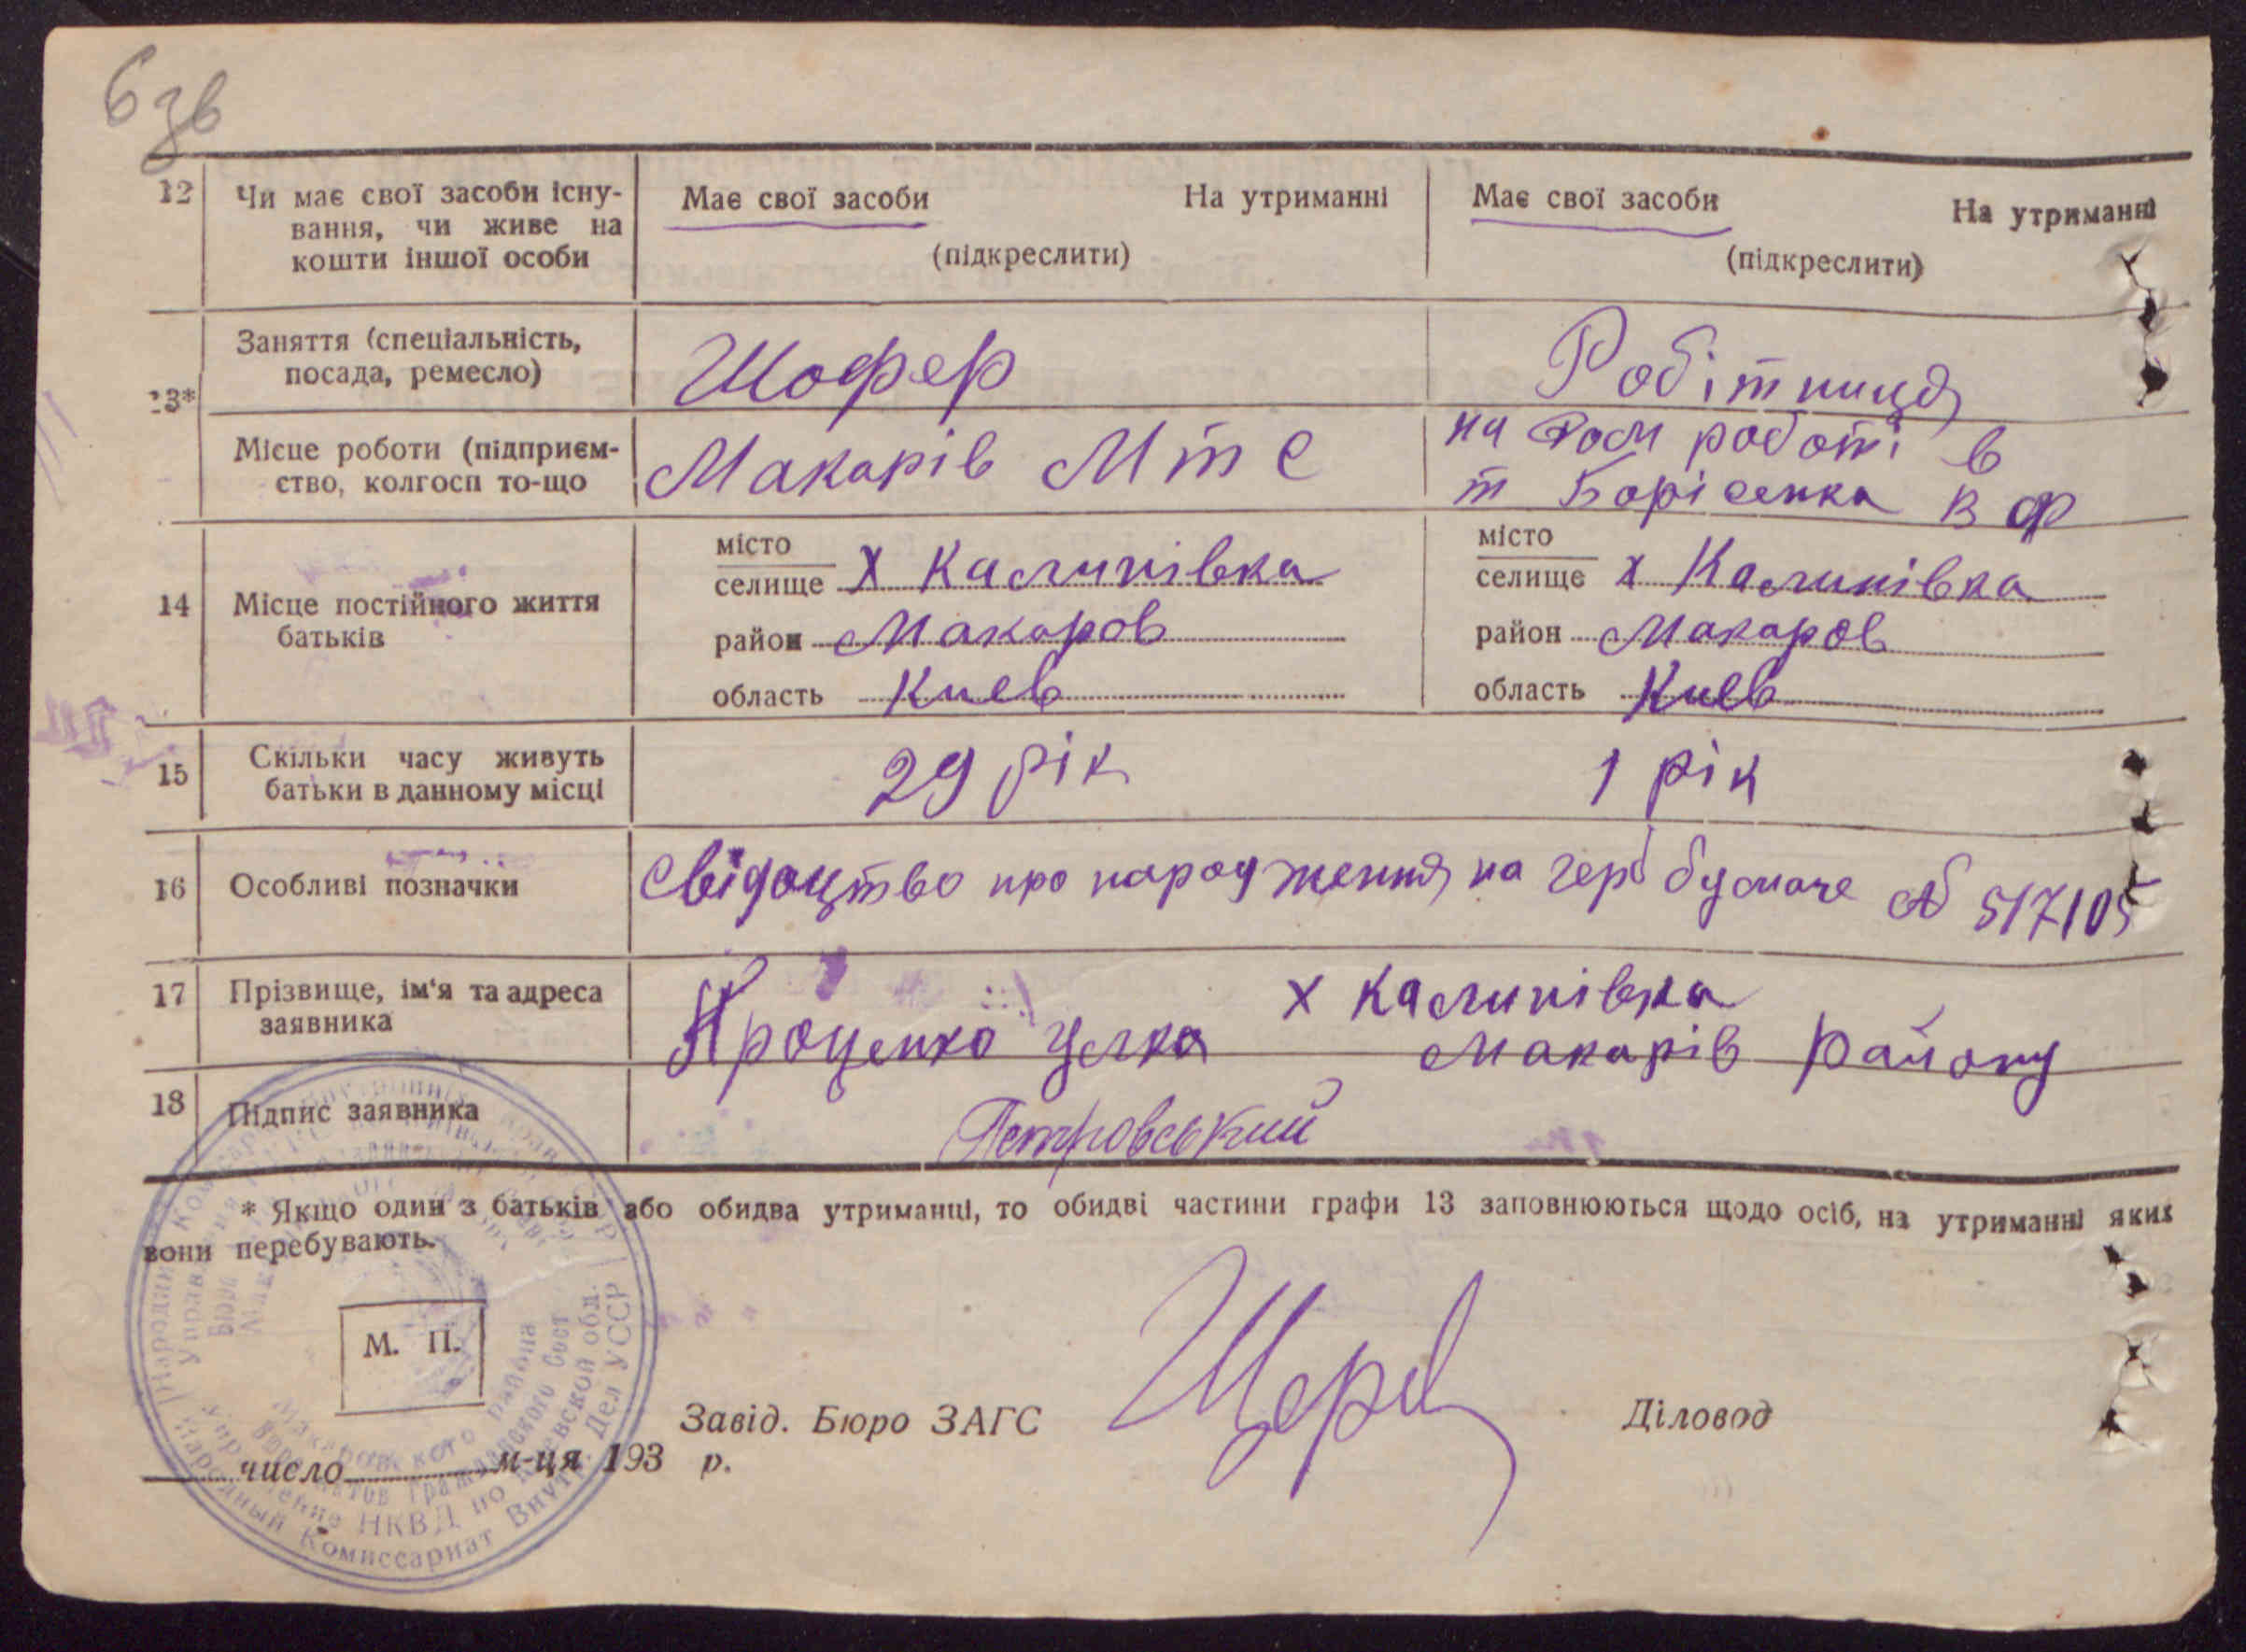 6 зв
12 Чи має свої засоби існу-
вання, чи живе на
кошти іншої особи
Має свої засоби На утриманні
(підкреслити)
Має свої засоби На утриманні
(підкреслити)
13*
Заняття (спеціальність,
посада, ремесло)
Шофер
Робітниця
Місце роботи (підприєм-
ство, колгосп то-що
Макарів Мтс
на роботі в
т Борісенка В Ф
14 Місце постійного життя
батьків
місто
селище х Калинівка
район Макаров
область Киев
місто
селище х Калинівка
район Макаров
область Киев
15 Скільки часу живуть
батьки в данному місці
29 рік
1 рік
16 Особливі позначки
Свідоцтво про народження на герб бумаге № 517105
17 Прізвище, ім'я та адреса
заявника
Проценко х Калинівка
Макарів району
18 Підпис заявника
Петровський
* Якщо один з батьків або обидва утриманці, то обидві частини графи 13 заповнюються щодо осіб, на утриманні яких
вони перебувають.
М. П.
Завід. Бюро ЗАГС
Діловод
число м-ця 193 р.
Макаровского района
Управление НКВД по Киевской обл.
Народный Комиссариат Внутр. Дел УССР